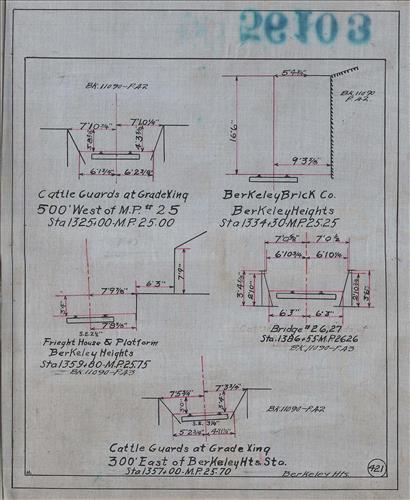 56103
BK.11090-P.A2
7'10¾" 7'10¼"
6'1¾" 6'2¾"
Cattle Guards at Grade Xing
500' West of M.P. # 25
Sta 1325+00-M.P. 25.00
BK.11090
P.A2
16'6"
9'3⅜"
Berkeley Brick Co.
Berkeley Heights
Sta 1334+30-M.P. 25.25
6'3"
7'9"
7'9⅞"
3'4"
7'8⅜"
S.E. 2½"
Frieght House & Platform
Berkeley Heights
Sta 1359+80-M.P. 25.75
BK.11090-P.A3
7'0½" 7'0½"
6'10¾" 6'10¼"
2'10"
3'6"
6'3" 6'3"
Bridge #26,27
Sta. 1386+55 M.P. 26.26
BK.11090-P.A3
7'5¾" 7'3½"
BK.11090-P.A2
S.E. 3½"
5'2¾"
Cattle Guards at Grade Xing
300' East of Berkeley Hts. Sta.
Sta 1357+00-M.P. 25.70
Berkeley Hts.
421